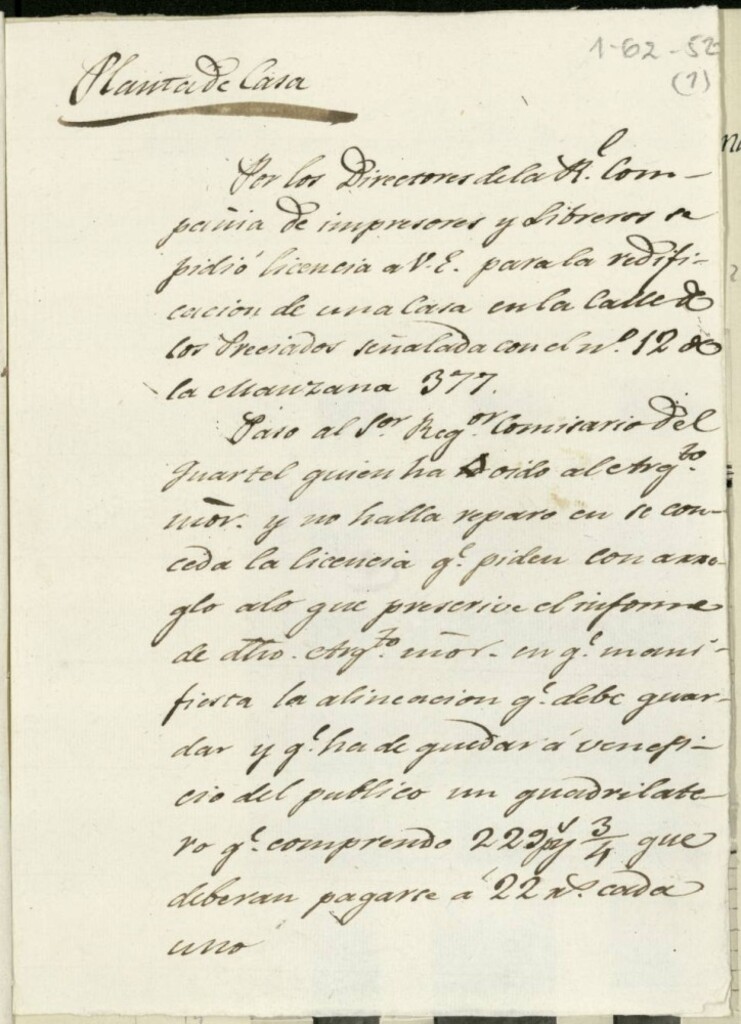 1-62-52
(1)
Planta de Casa
Por los Directores de la Rl. Com-
pañia de impresores y Libreros se
pidió licencia a V.E. para la redifi-
cacion de una Casa en la Calle de
los Preciados señalada con el nº. 12 de
la Manzana 377.
Paso al Sor. Regor. Comisario del
Quartel quien ha oido al Arqto.
mõr. y no halla reparo en se con-
ceda la licencia qe. piden con arre-
glo alo que prescrive el informe
de dho. Arqto. mõr. en qe. mani-
fiesta la alineacion qe. debe guar-
dar y qe. ha de quedar á venefi-
cio del publico un quadrilate-
ro qe. comprende 229 ps y 3/4 que
deberan pagarse á 22 rs. cada
uno